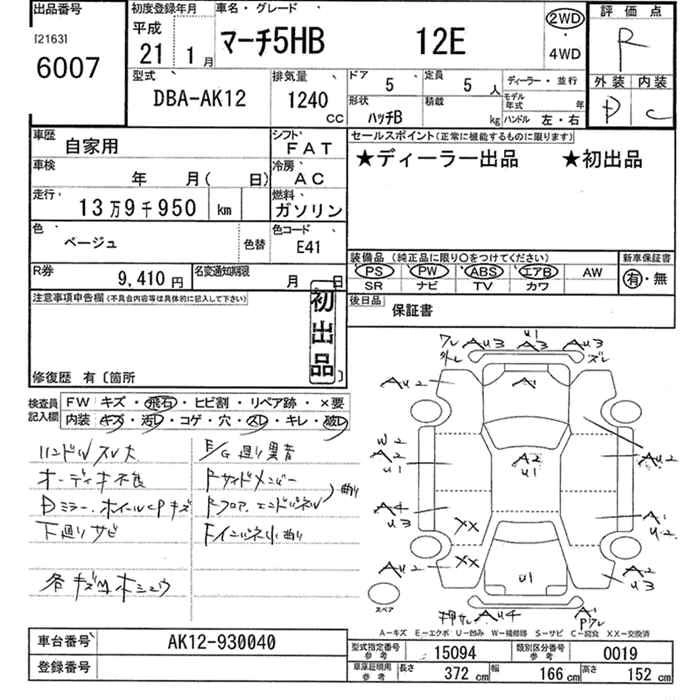 出品番号
[2163]
6007
初度登録年月
平成
21年
1月
車名・グレード
マーチ5HB 12E
2WD
・
4WD
評価点
R
外装 内装
D C
型式
DBA-AK12
排気量
1240
CC
ドア
5
定員
5人
形状
ハッチB
積載
kg
ディーラー・並行
モデル年式 年
ハンドル 左・右
車歴
自家用
シフト
FAT
車検
年 月( 日)
冷房
AC
走行
13万9千950 km
燃料
ガソリン
色
ベージュ
色替
色コード
E41
R券
9,410円
名変通知期限
月 日
セールスポイント(正常に機能するものに限ります)
★ディーラー出品 ★初出品
装備品(純正品に限り○をつけてください)
PS PW ABS エアB AW
SR ナビ TV カワ
新車保証書
有・無
後日品
保証書
注意事項申告欄(不具合内容等は具体的に記入して下さい)
初出品
修復歴 有〔箇所 〕
検査員記入欄
FW キズ・飛石・ヒビ割・リペア跡・×要
内装・キズ・汚レ・コゲ・穴・スレ・キレ・破レ
ハンドルスレ大
オーディオ不良
Dミラー.ホイールCPキズ
下廻りサビ
各キズ凹ホシュウ
E/G廻り異音
Rサイドメンバー
Rフロア.エンドパネル
曲り
Fインパネ小曲り
ワレ
外レ
AU3
U1
A3
AU3
ズレ
AU2
A1
AU2
W2
A2
U1
A2
U1
AU2
A4
U3
XX
XX
A1
U2
AU2
U1
A2
U3
スペア
押サレ
AU4
A1
Pワレ
A-キズ E-エクボ U-凹み W-補修跡 S-サビ C-腐食 XX-交換済
車台番号
AK12-930040
登録番号
型式指定番号
参考
15094
類別区分番号
参考
0019
車庫証明用
参考
長さ
372 cm
幅
166 cm
高さ
152 cm